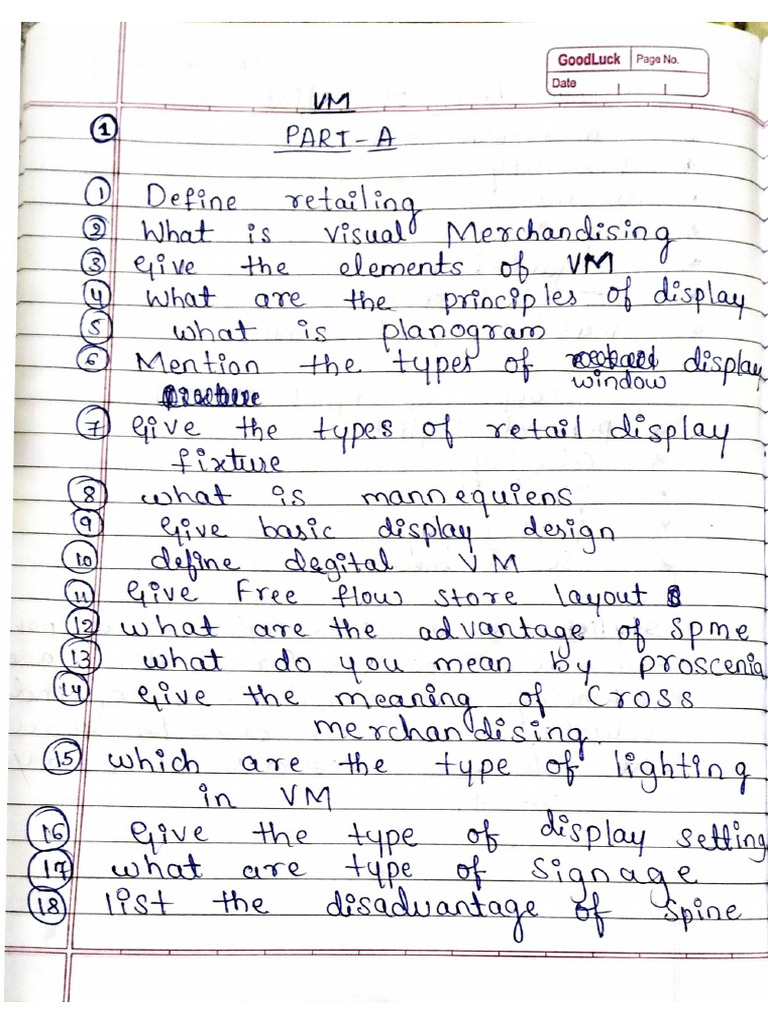 GoodLuck Page No.
Date
VM
① PART-A
① Define retailing
② What is visual Merchandising
③ Give the elements of VM
④ What are the principles of display
⑤ what is planogram
⑥ Mention the types of display
window
⑦ Give the types of retail display
fixture
⑧ what is mannequiens
⑨ Give basic display design
⑩ define degital VM
⑪ Give Free flow store layout
⑫ what are the advantage of spme
⑬ what do you mean by proscenia
⑭ Give the meaning of Cross
merchandising
⑮ which are the type of lighting
in VM
⑯ Give the type of display setting
⑰ what are type of Signage
⑱ list the disadvantage of spine